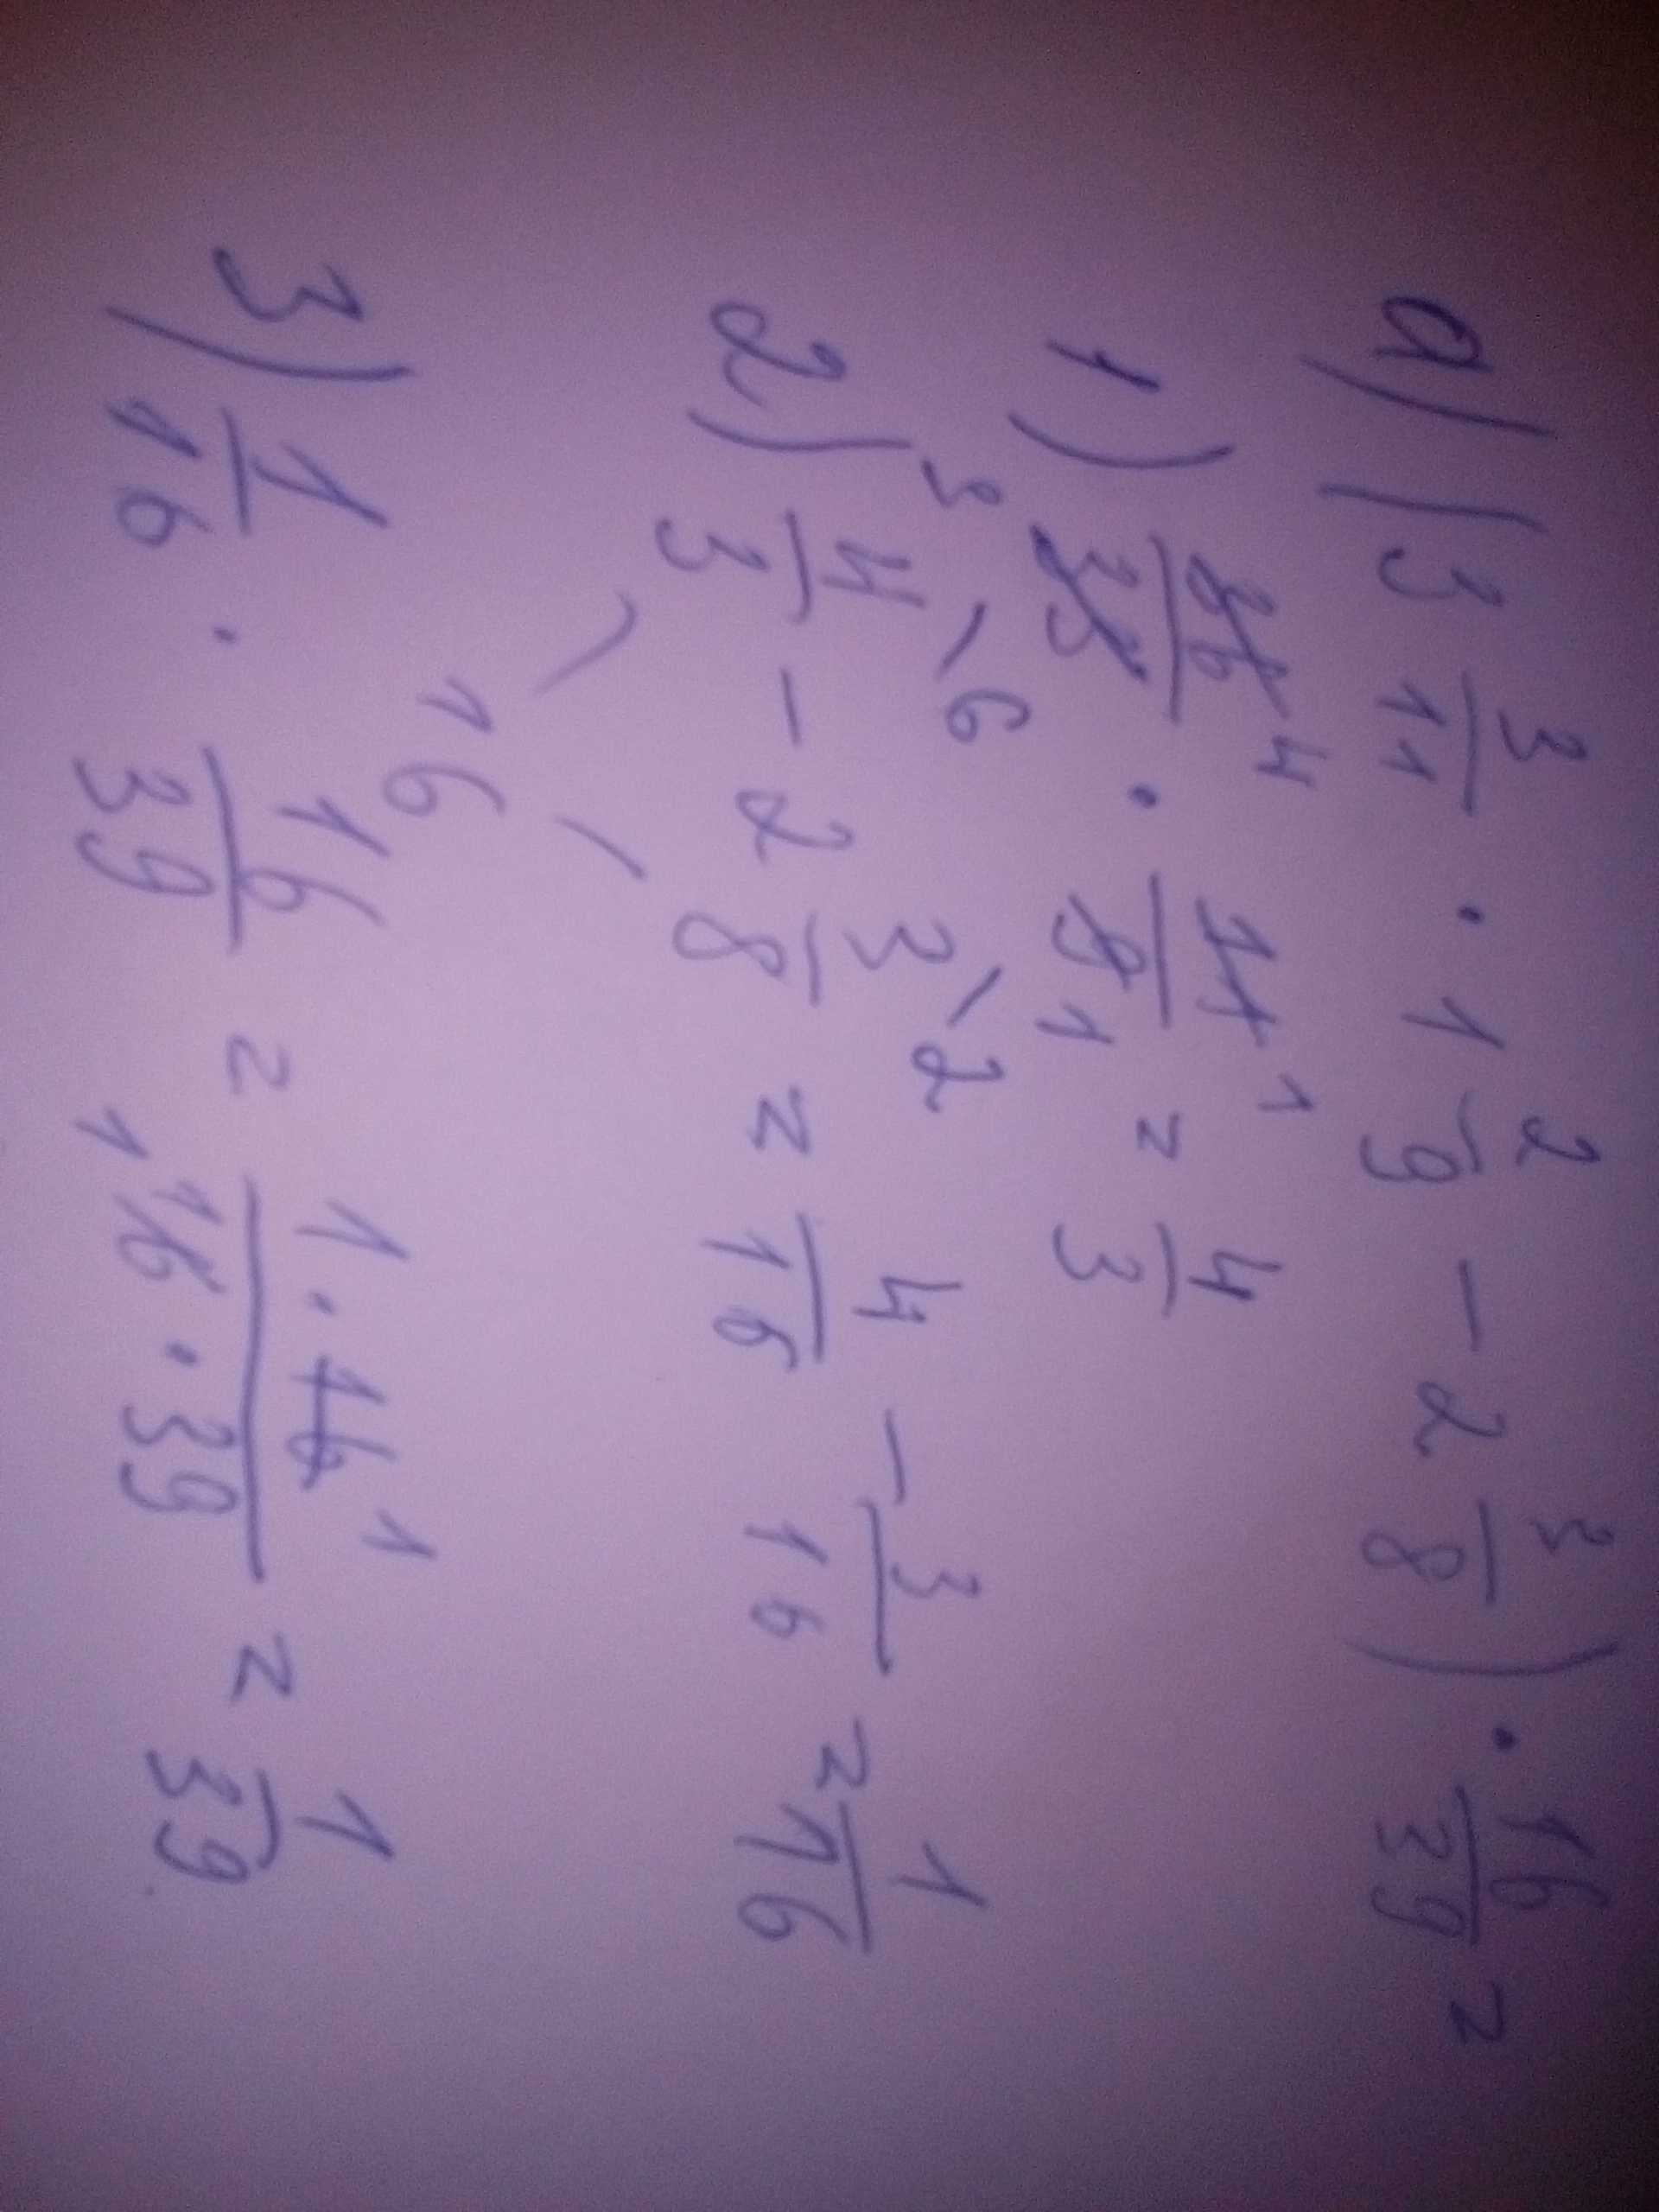 а) (3 3/11 · 1 2/9 - 2 3/8) · 16/39 =
1) 36 4/33 3 · 11 1/9 1 = 4/3
2) 4\6/3 - 2 3\2/8 = 4/16 - 3/16 = 1/16
16
3) 1/16 · 16/39 = 1 · 16 1/1 16 · 39 = 1/39